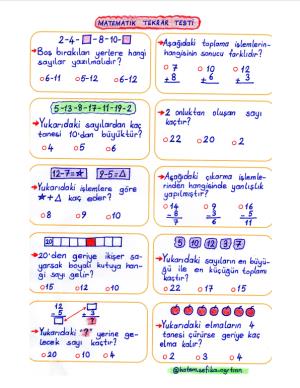 MATEMATİK TEKRAR TESTİ
2-4-□-8-10-□
Boş bırakılan yerlere hangi
sayılar yazılmalıdır?
6-11 5-12 6-12
Aşağıdaki toplama işlemlerin-
hangisinin sonucu farklıdır?
7 10 12
+8 +6 +3
5-13-8-17-11-19-2
Yukarıdaki sayılardan kaç
tanesi 10'dan büyüktür?
4 5 6
2 onluktan oluşan sayı
kaçtır?
22 20 2
12-7=☆ 9-5=△
Yukarıdaki işlemlere göre
☆+△ kaç eder?
8 9 10
Aşağıdaki çıkarma işlemle-
rinden hangisinde yanlışlık
yapılmıştır?
14 9 16
-8 -3 -5
6 6
20
20'den geriye ikişer sa-
yarsak boyalı kutuya han-
gi sayı gelir?
15 12 10
5 10 12 3 7
Yukarıdaki sayıların en büyü-
ğü ile en küçüğün toplamı
kaçtır?
22 17 15
12
-5 +3
?
Yukarıdaki "?" yerine ge-
lecek sayı kaçtır?
20 10
Yukarıdaki elmaların 4
tanesi çürürse geriye kaç
elma kalır?
2 3 4
@hatem.sefika.ogrtmen